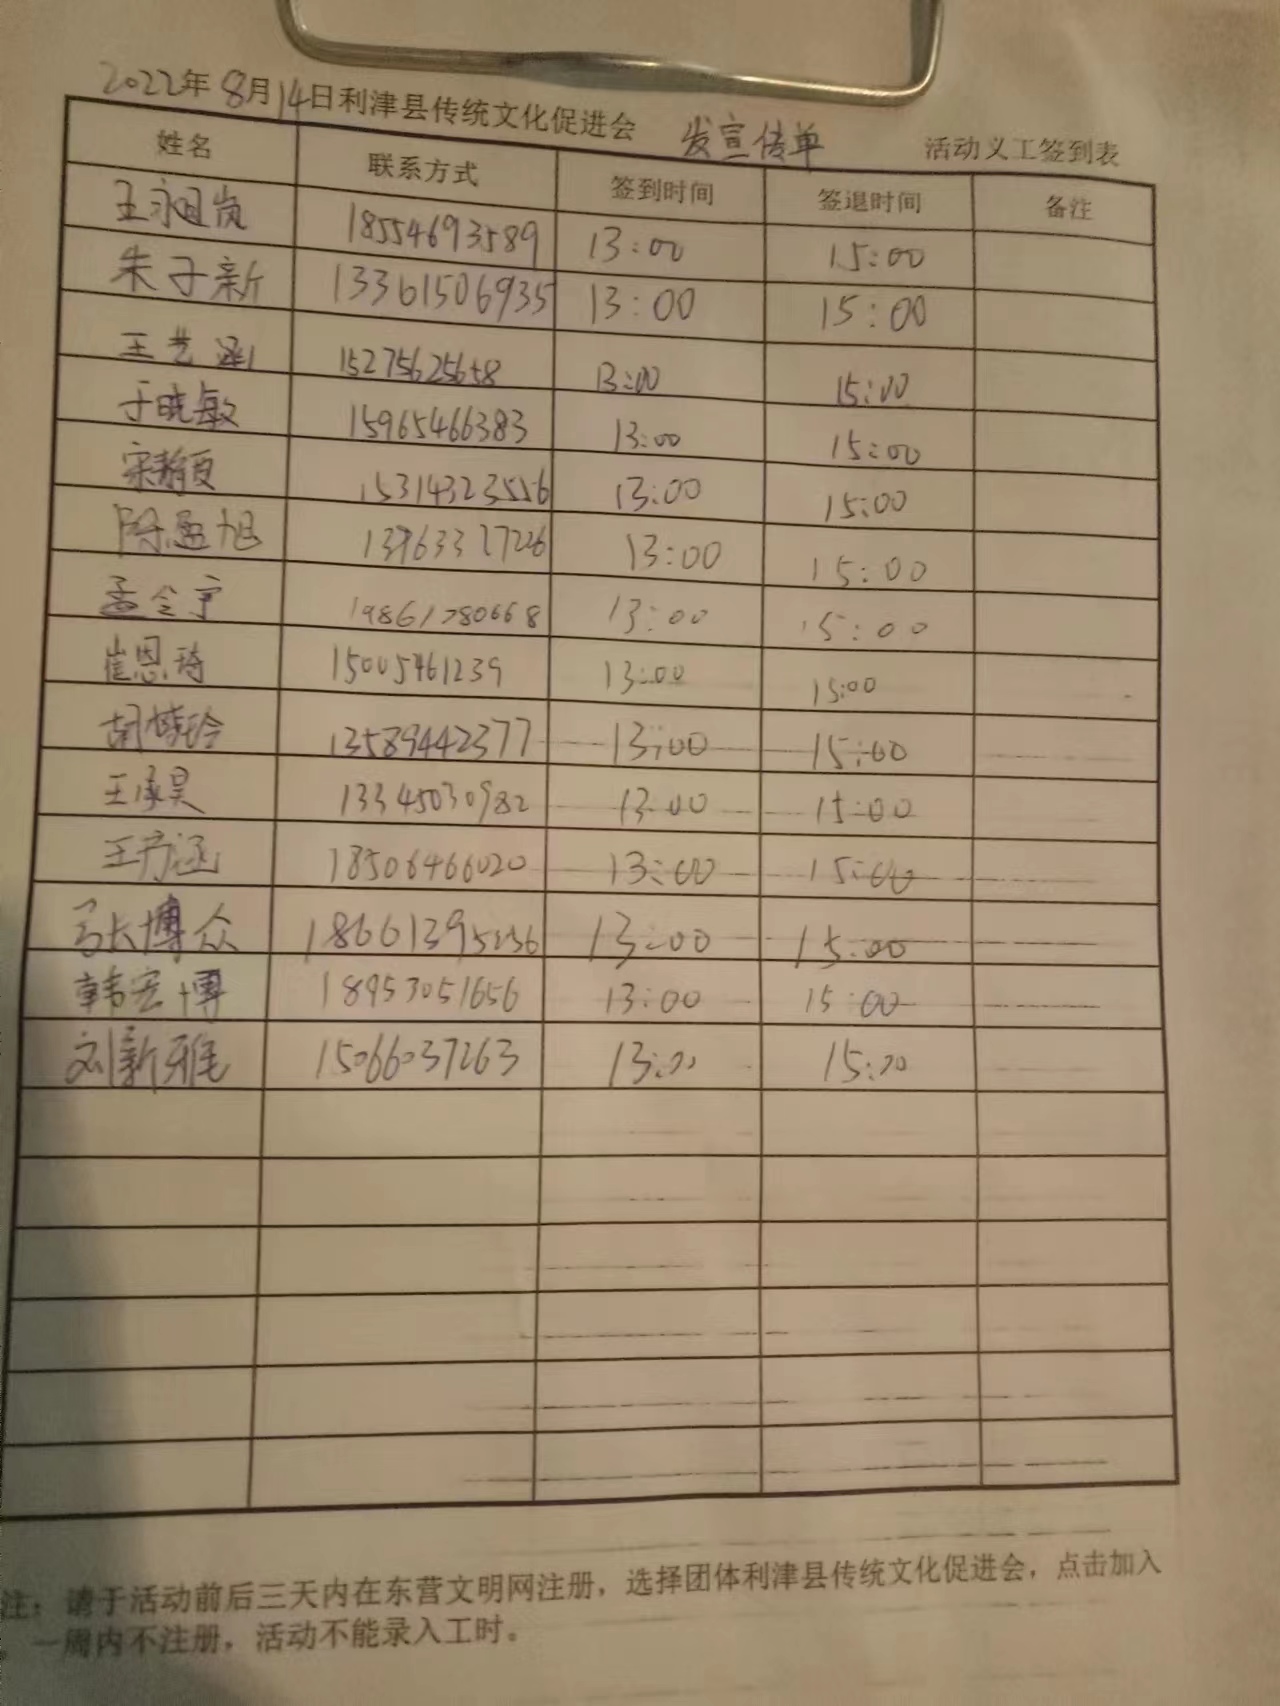 2022年8月14日利津县传统文化促进会 发宣传单 活动义工签到表
姓名 联系方式 签到时间 签退时间 备注
18554693589 13:00 15:00
朱子新 13361506935 13:00 15:00
王艺涵 15275625658 13:00 15:00
于晓敏 15965466383 13:00 15:00
宋静 15314323556 13:00 15:00
陈孟旭 13963317226 13:00 15:00
孟令宇 19861280668 13:00 15:00
崔恩琦 15005461239 13:00 15:00
胡 玲 13589442377 13:00 15:00
王承昊 13345030982 13:00 15:00
王方涵 18506466020 13:00 15:00
张博众 18661395236 13:00 15:00
韩宏博 18953051656 13:00 15:00
刘新雅 15066037263 13:00 15:00
注：请于活动前后三天内在东营文明网注册，选择团体利津县传统文化促进会，点击加入
一周内不注册，活动不能录入工时。